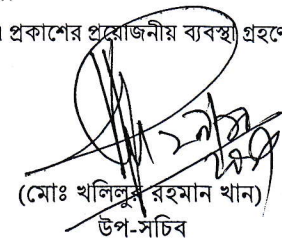 প্রকাশের প্রয়োজনীয় ব্যবস্থা গ্রহণে
(মোঃ খলিলুর রহমান খান)
উপ-সচিব